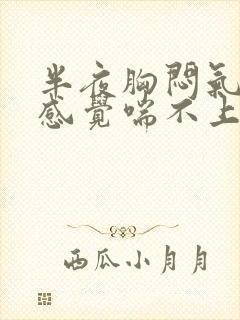 半夜胸悶氣
感覺喘不上
西瓜小月月